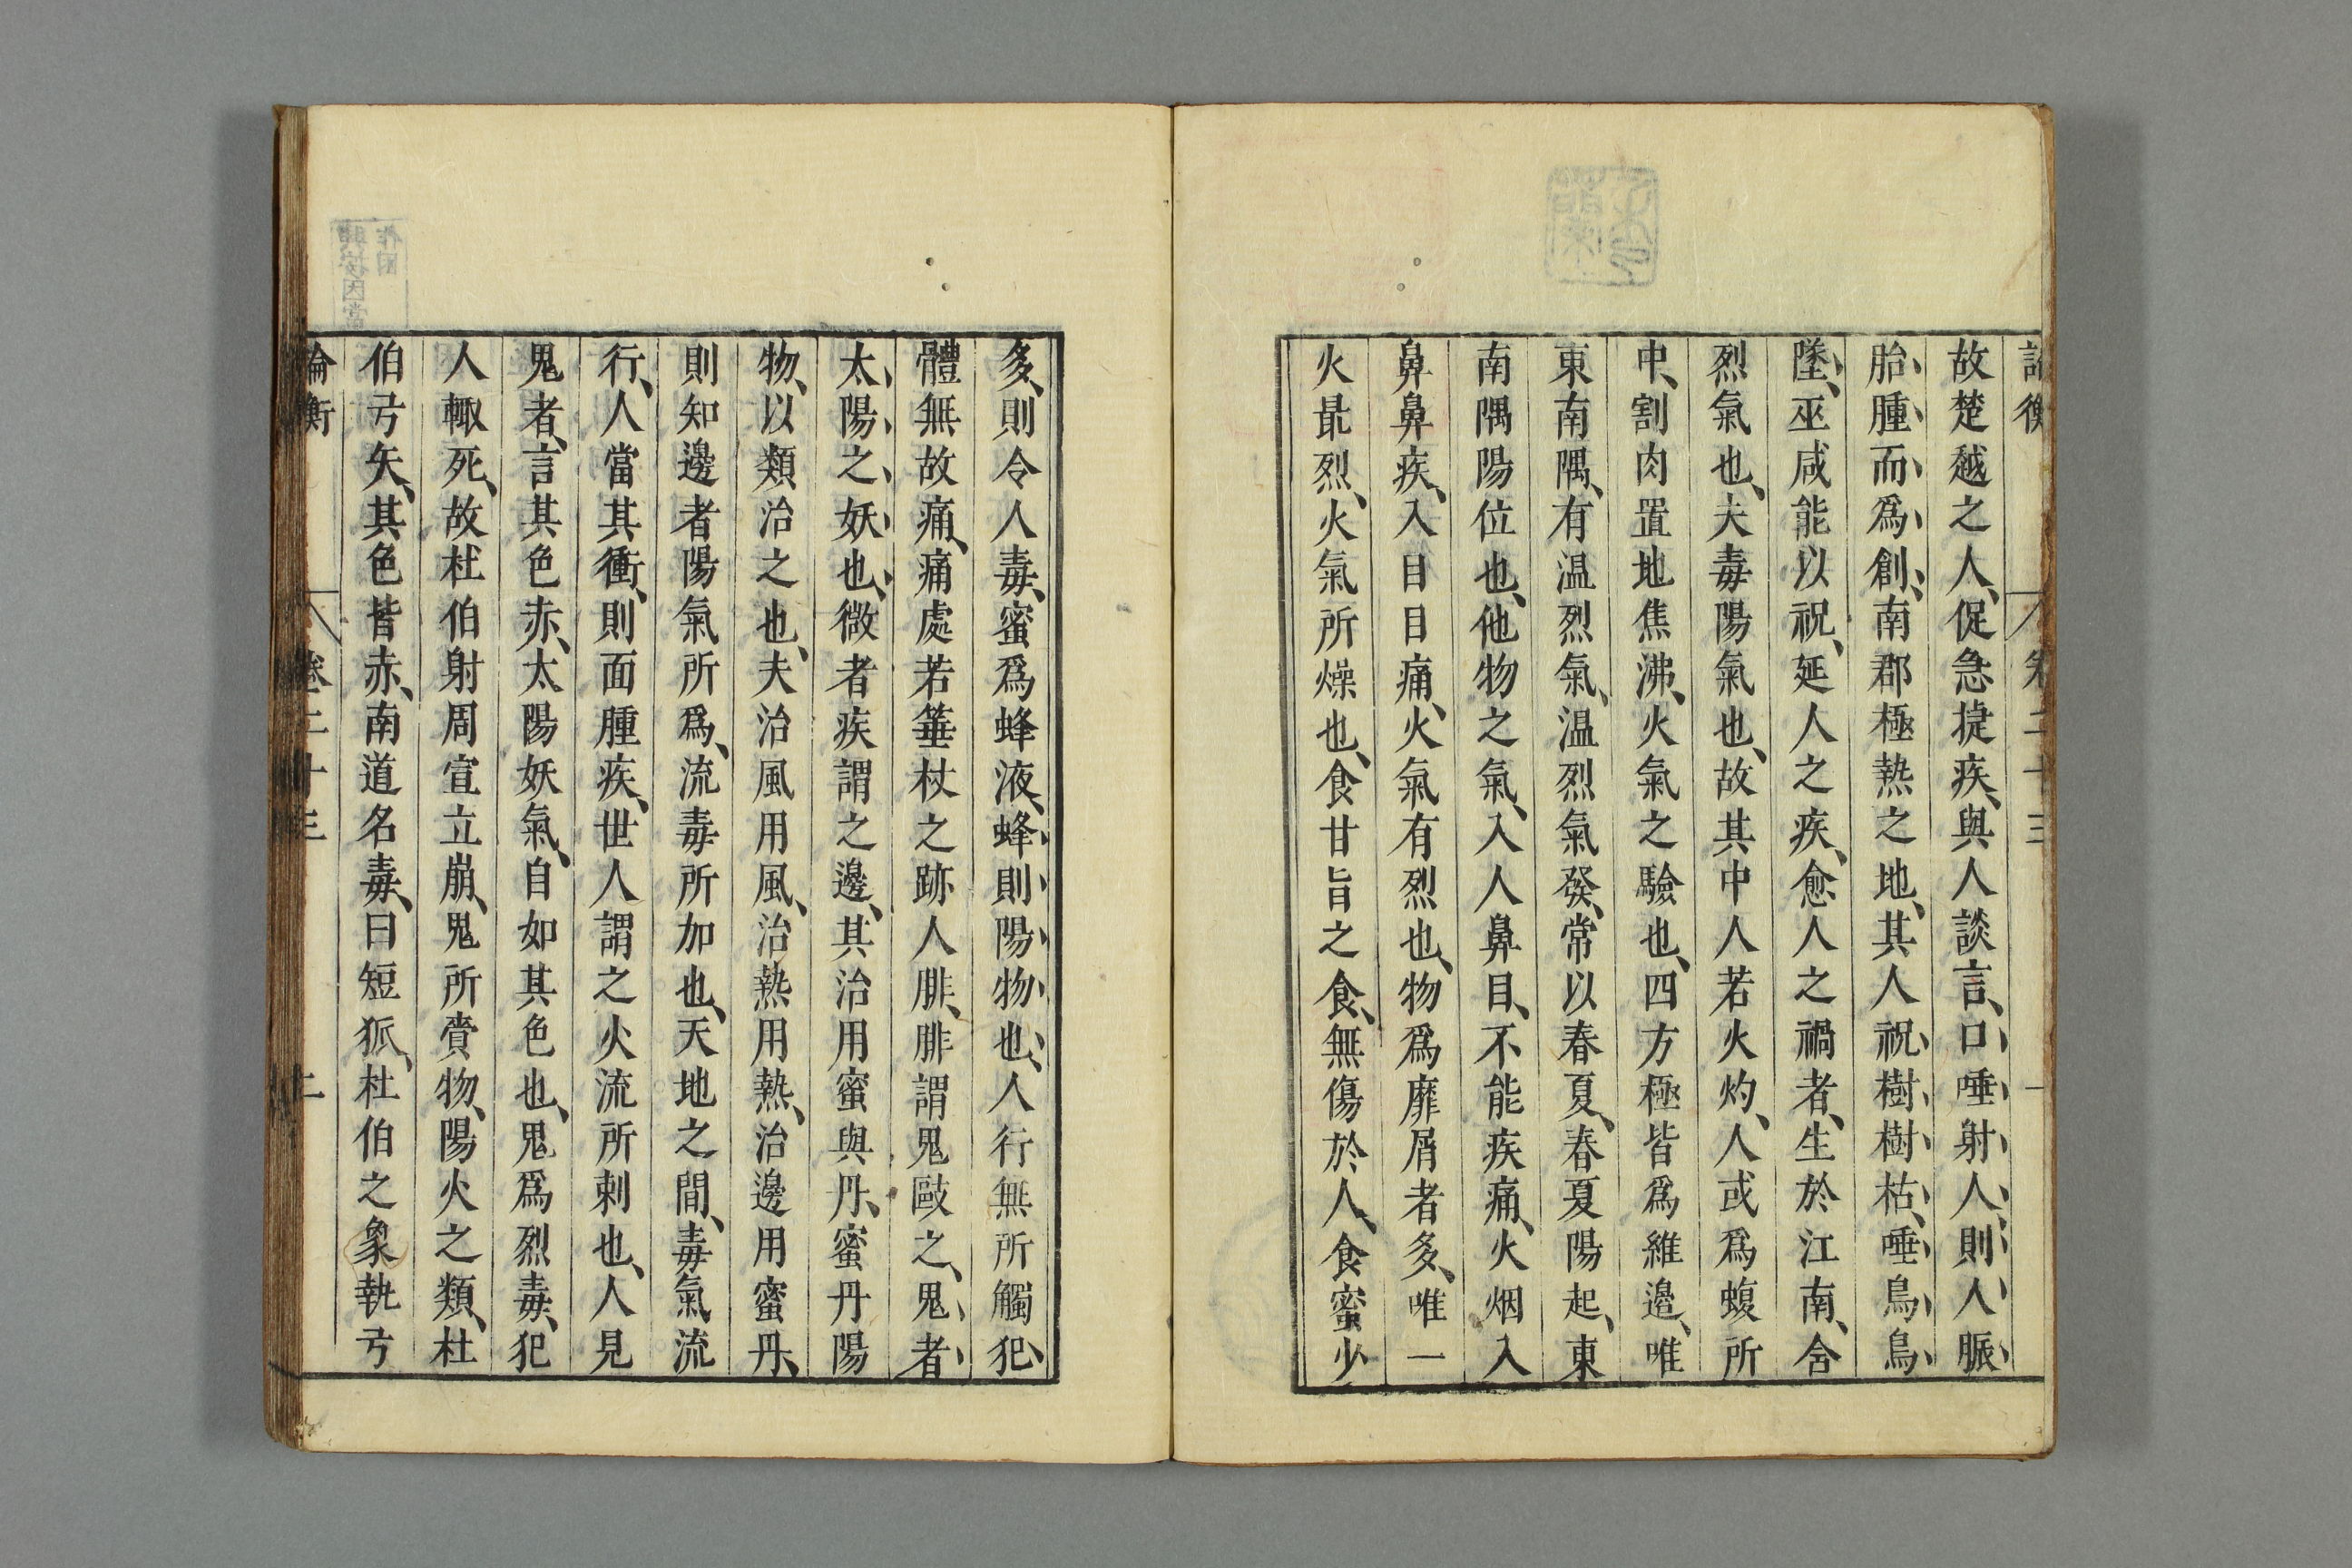 論衡 卷二十三 一
故楚越之人、促急捷疾、與人談言、口唾射人、則人脤
胎、腫而爲創、南郡極熱之地、其人祝樹樹枯、唾鳥鳥
墜、巫咸能以祝、延人之疾、愈人之禍者、生於江南、含
烈氣也、夫毒陽氣也、故其中人若火灼、人或爲蝮所
中、割肉置地焦沸、火氣之驗也、四方極皆爲維邉、唯
東南隅、有温烈氣、温烈氣發、常以春夏、春夏陽起、東
南隅陽位也、他物之氣、入人鼻目、不能疾痛、火烟入
鼻鼻疾、入目目痛、火氣有烈也、物爲靡屑者多、唯一
火最烈、火氣所燥也、食甘旨之食、無傷於人、食蜜少
多、則令人毒、蜜爲蜂液、蜂則陽物也、人行無所觸犯、
體無故痛、痛處若箠杖之跡人腓、腓謂鬼毆之、鬼者、
太陽之妖也、微者疾謂之邊、其治用蜜與丹、蜜丹陽
物、以類治之也、夫治風用風、治熱用熱、治邊用蜜丹、
則知邊者陽氣所爲、流毒所加也、天地之間、毒氣流
行、人當其衝、則面腫疾、世人謂之火流所刺也、人見
鬼者、言其色赤、太陽妖氣、自如其色也、鬼爲烈毒、犯
人輙死、故杜伯射周宣立崩、鬼所賫物、陽火之類、杜
伯弓矢、其色皆赤、南道名毒、曰短狐、杜伯之象執弓
論衡 卷二十三 二